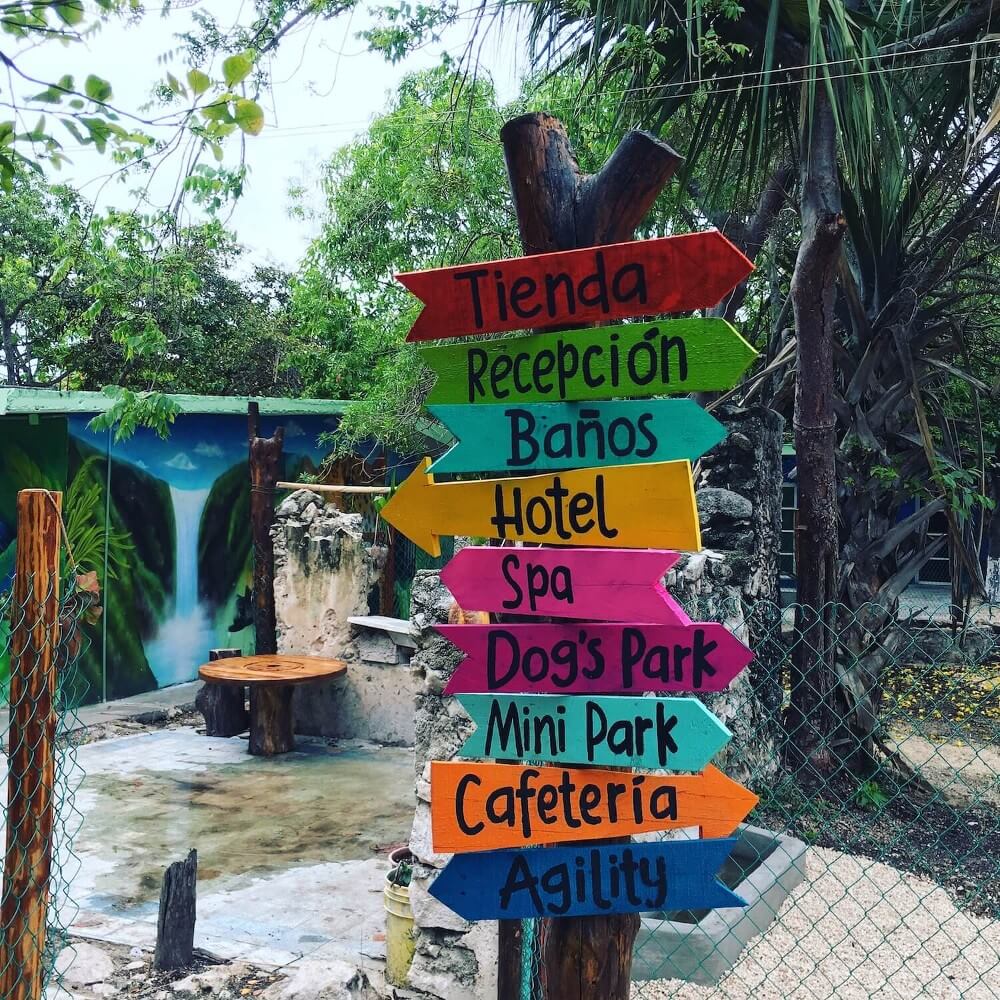 Tienda
Recepción
Baños
Hotel
Spa
Dog's Park
Mini Park
Cafetería
Agility